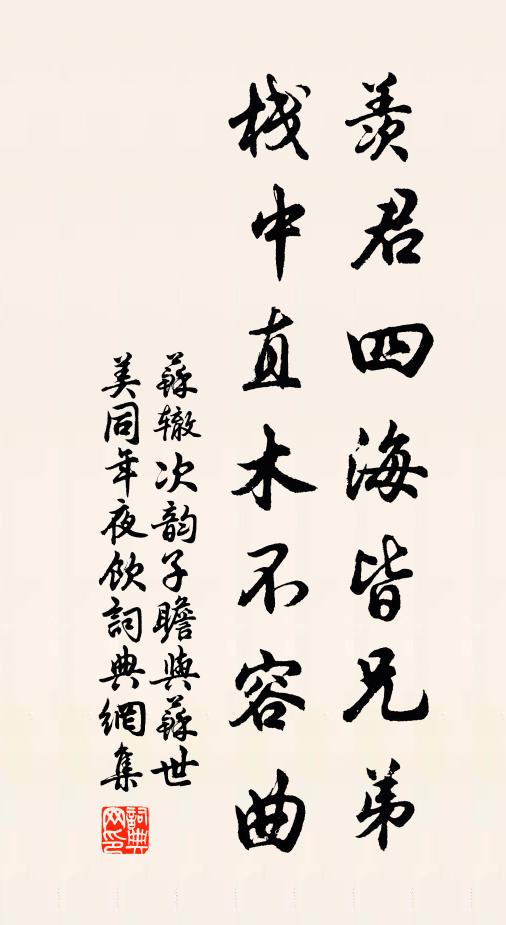 羨君四海皆兄弟
棧中直木不容曲
蘇轍次韵子瞻與蘇世
美同年夜飲詞典網集
詞典
网印